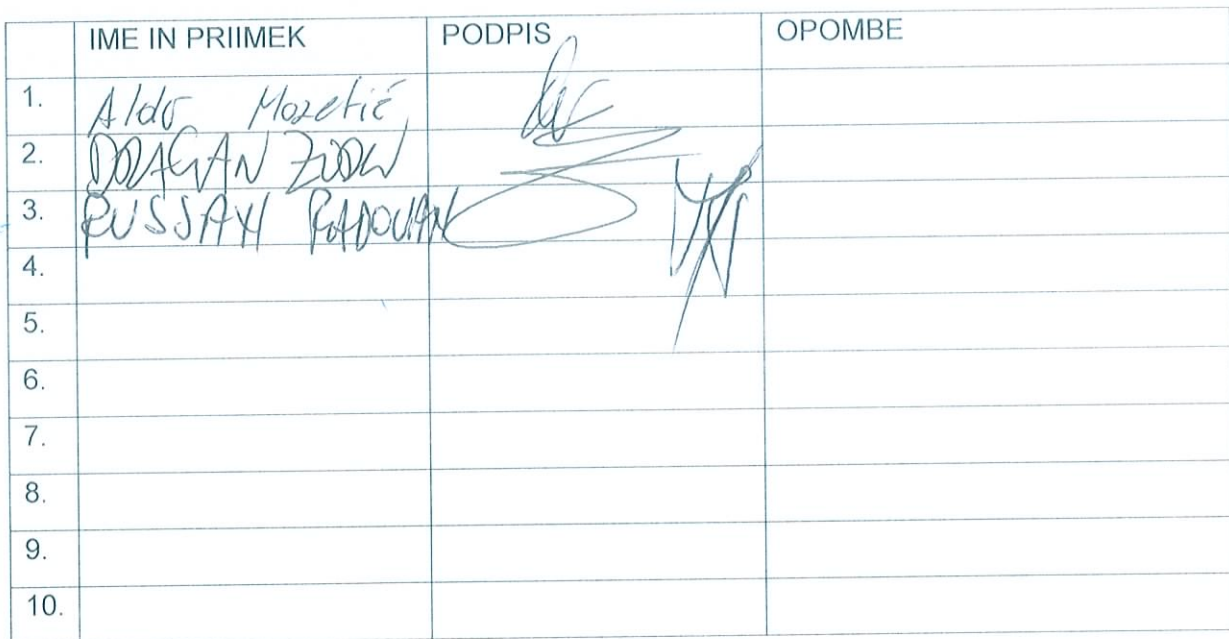 IME IN PRIIMEK PODPIS OPOMBE
1. Aldo Mozetič
2. DRAGAN
3. RUSSIAN RADOVAN
4.
5.
6.
7.
8.
9.
10.